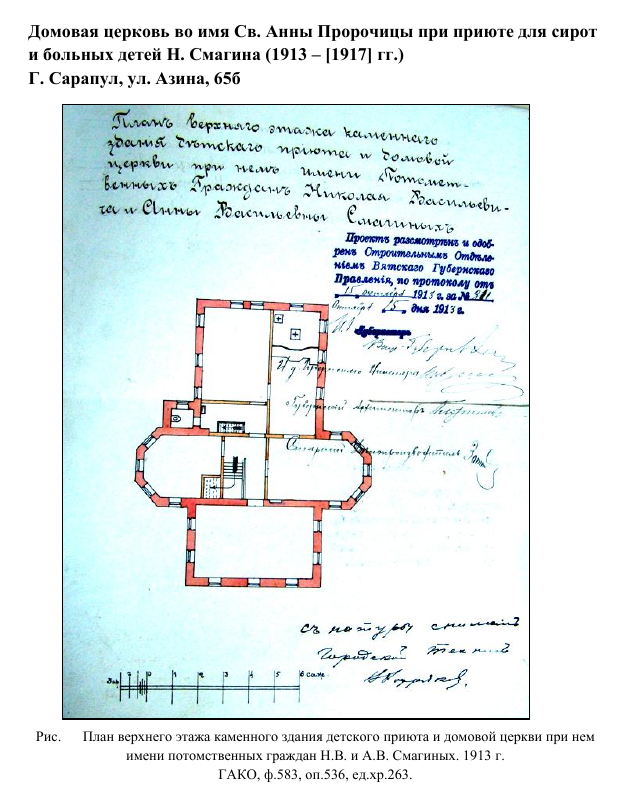 Домовая церковь во имя Св. Анны Пророчицы при приюте для сирот
и больных детей Н. Смагина (1913 – [1917] гг.)
Г. Сарапул, ул. Азина, 65б
Планъ верхняго этажа каменнаго
зданія дѣтскаго приюта и домовой
церкви при немъ имени Потомст-
венныхъ Гражданъ Николая Васильеви-
ча и Анны Васильевны Смагиныхъ
Проектъ разсмотрѣнъ и одоб-
ренъ Строительнымъ Отдѣле-
ніемъ Вятскаго Губернскаго
Правленія, по протоколу отъ
15 октября 1913 г. за №
Октября 15 дня 1913 г.
Губернаторъ
Вице-Губернаторъ
И д Губернскаго Инженера
Губернскій Архитекторъ
Старшій Дѣлопроизводитель
съ натуры снималъ
Городской Техникъ
1 2 3 4 5 6 саж.
Рис. План верхнего этажа каменного здания детского приюта и домовой церкви при нем
имени потомственных граждан Н.В. и А.В. Смагиных. 1913 г.
ГАКО, ф.583, оп.536, ед.хр.263.